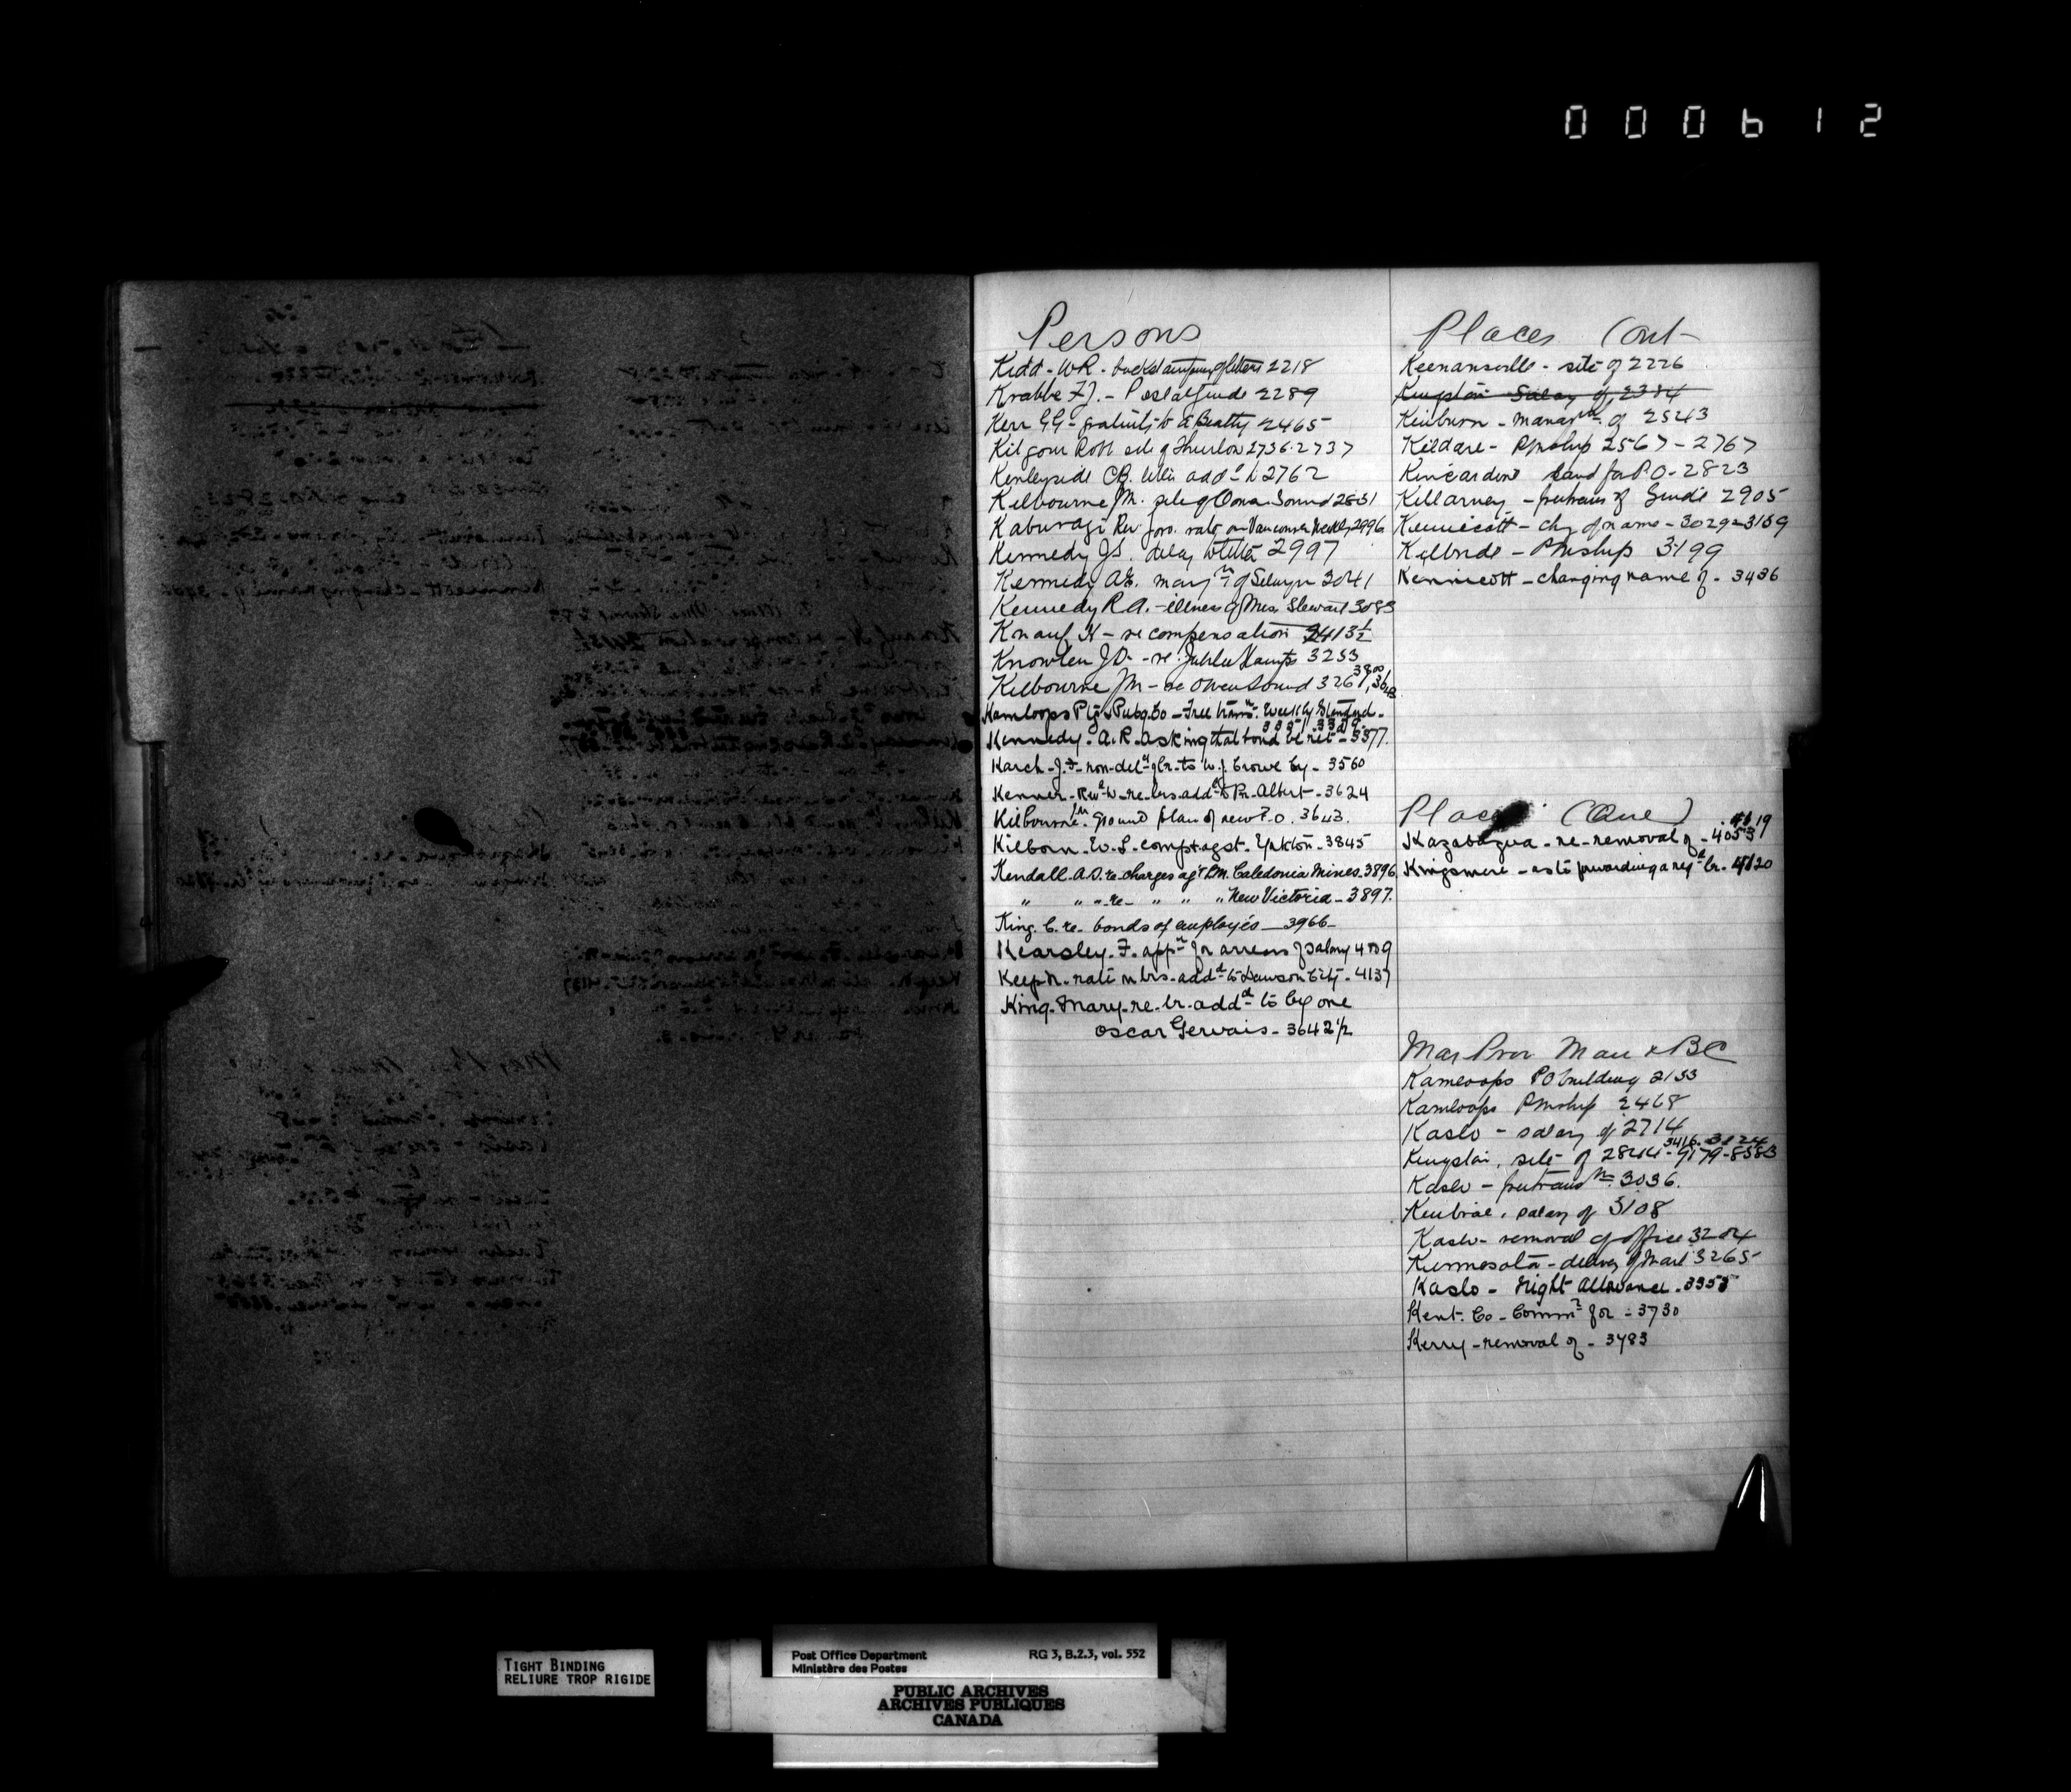 000612
Persons
Kidd - W R - backstamping of letters 2218
Krabbe F J. - Postal Guide 2289
Kerr G G - gratuity to A Beatty 2465
Kilgour Robt site of Thurlow 2736-2737
Kenleyside C B. letter addd to 2762
Kilbourne J M. site of Owen Sound 2831
Kaburagi Rev forn. rate on Vancouver Weekly 2996
Kennedy J S. delay to letter 2997
Kennedy A E. mangt of Selwyn 3041
Kennedy R A. - illness of Mrs. Stewart 3083
Knauf, K - re compensation 2413½
Knowlen J D - re: Jubilee Stamps 3253
Kilbourne J M - re Owen Sound 3267, 3800, 3643
Kamloops Ptg & Pubg. Co - Free transn. Weekly Standard -
3351 3389
Kennedy. A. R. asking that bond be ret - 3377.
Karch - J. F. non-dely of lr. to W. J. Crowe by - 3560
Kenner - Revd W - re - lrs. addd to Pr. Albert - 3624
Kilbourne J M. ground plan of new P.O. 3643.
Kilborn - W. S. compt agst. Yukton - 3845
Kendall. A. S. re charges agt P.M. Caledonia Mines. 3896
" " " - re - " " " New Victoria - 3897.
King. C. re - bonds of employés - 3966 -
Kearsley. F. appn for arrears of salary 4089
Keep R. rate on lrs. addd to Dawson City - 4137
King. Mary - re. lr. addd to by one
Oscar Gervais - 3642½
Places Ont
Keenansville - site of 2226
Kingston Salary of 2384
Kinburn - managmt of 2543
Kildare - Pmship 2567 - 2767
Kincardine land for P.O - 2823
Killarney - pertrans of Guide 2905
Kennicott - chg of name - 3029 - 3159
Kilbride - Pmship 3199
Kennicott - changing name of - 3436
Places (Que)
4119
Kazabazua - re - removal of - 4053
Kingsmere - as to forwarding a regd lr. - 4120
Mar Prov Man & BC
Kamloops PO building 2133
Kamloops Pmship 2468
Kaslo - salary of 2714
3416. 3124
Kingston, site of 2844 - 9179 - 8583
Kaslo - pertrans m. 3036.
Kinbrae, salary of 3108
Kaslo - removal of office 3204
Kinmosota - delivery of mail 3265
Kaslo - Night Allowance. 3355
Kent. Co - Commn for - 3730
Kerry - removal of - 3783
TIGHT BINDING
RELIURE TROP RIGIDE
Post Office Department RG 3, B.2.3, vol. 552
Ministère des Postes
PUBLIC ARCHIVES
ARCHIVES PUBLIQUES
CANADA